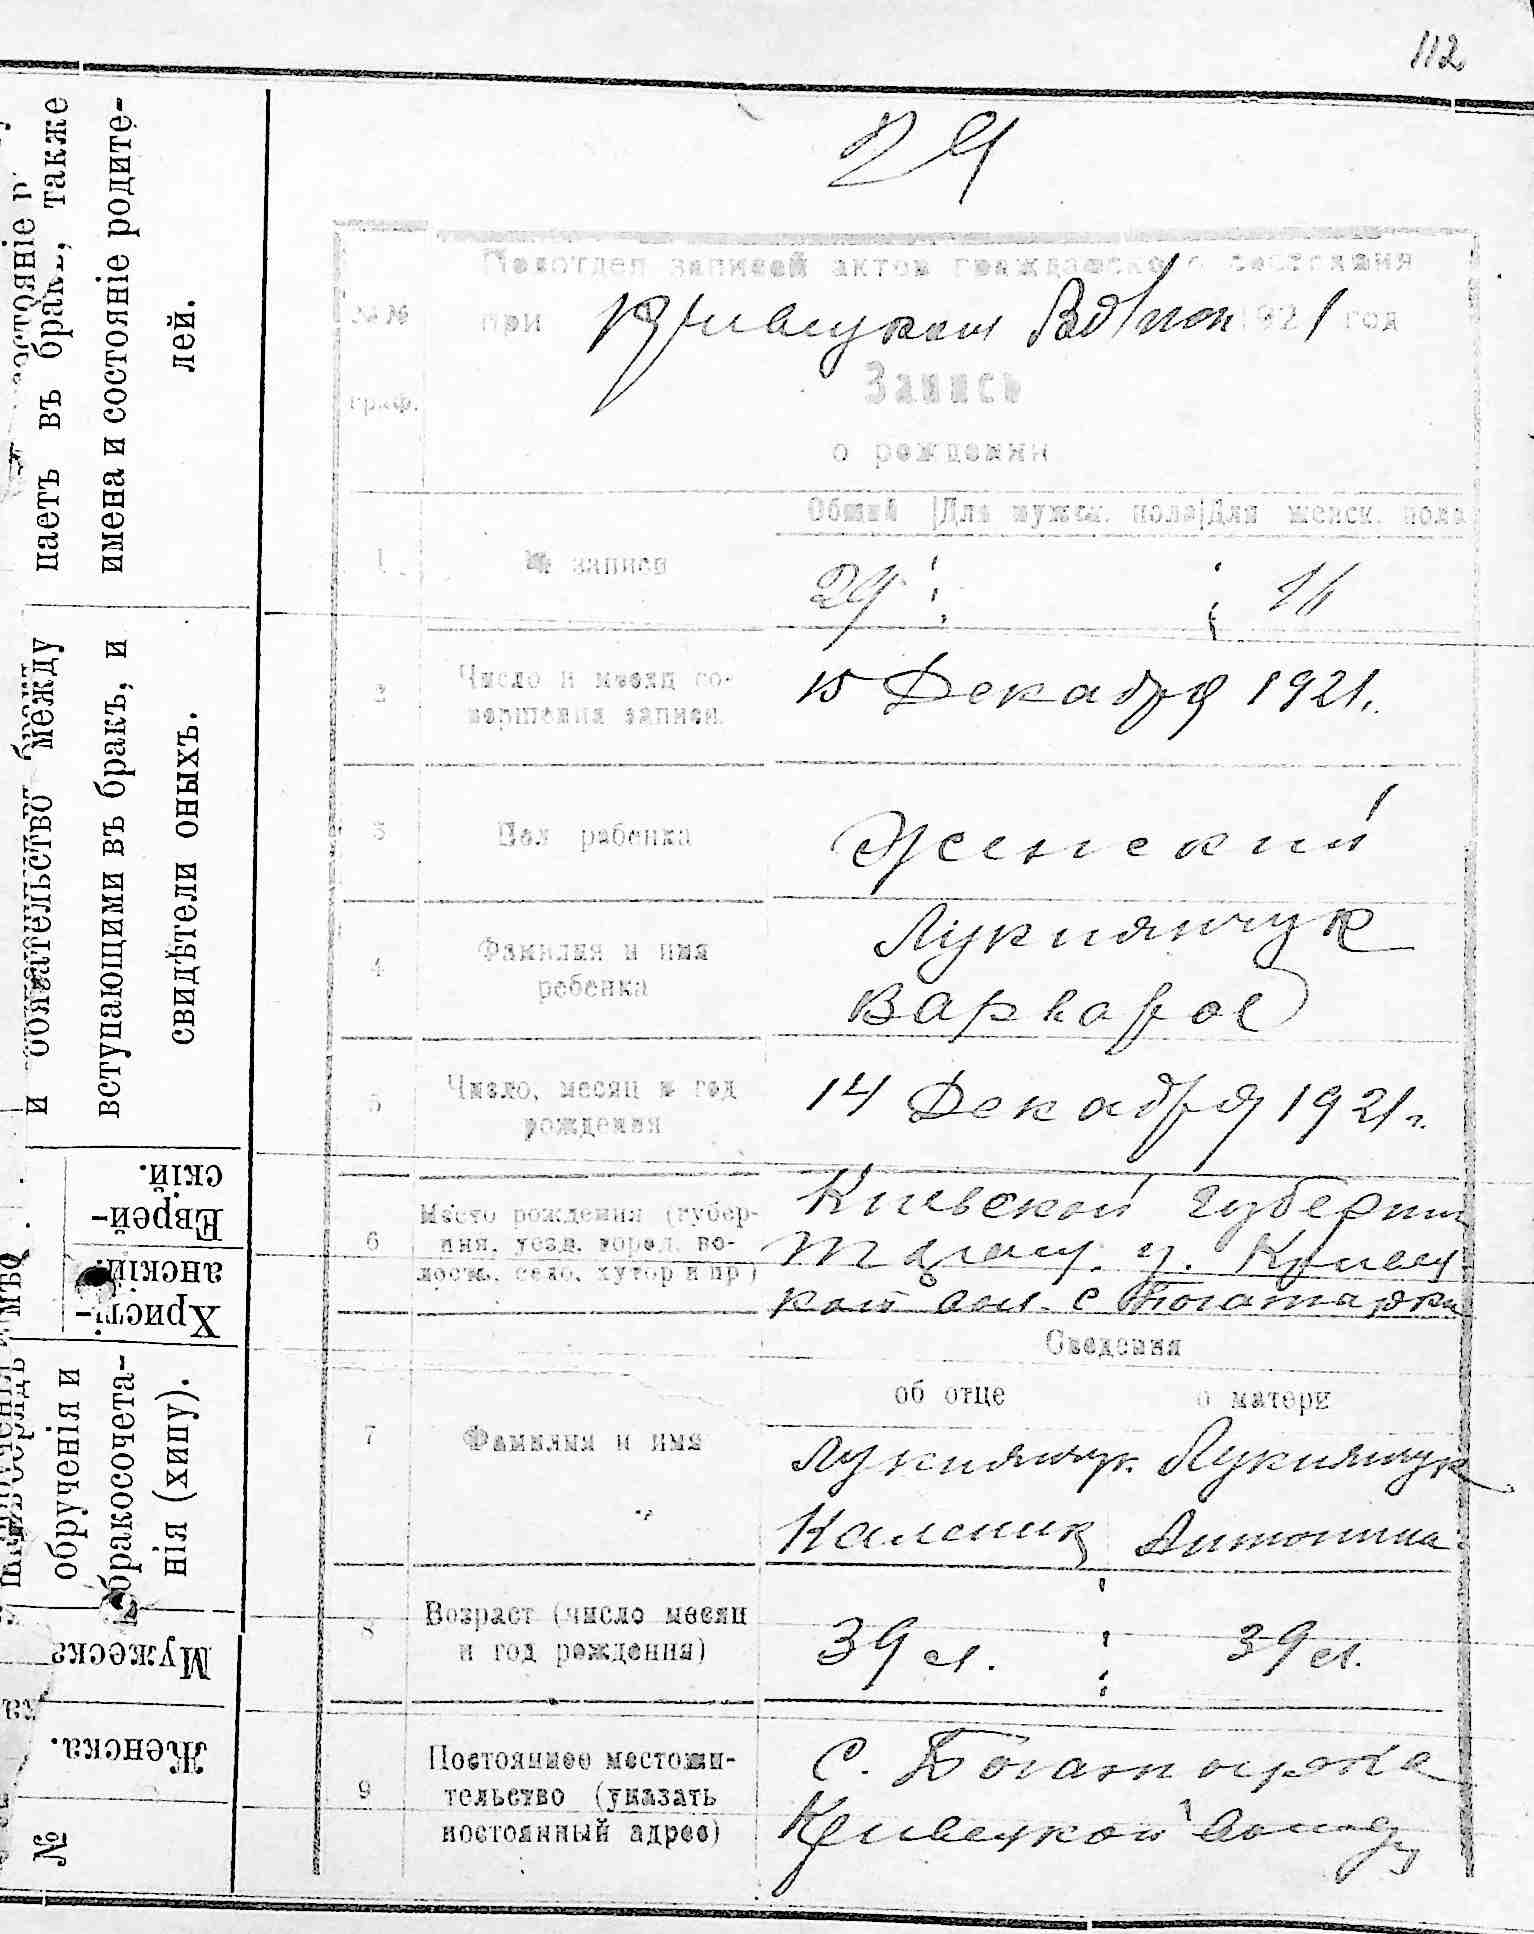 112
29
Подотдел записей актов гражданского состояния
№№ при Кривецком Волисп 1921 год
граф.
Запись
о рождении
Общий Для мужск. пола Для женск. пола
1 № записи 29 16
2 Число и месяц со-
вершения записи. 15 Декабря 1921.
3 Пол ребенка Женский
4 Фамилия и имя
ребенка Лукиянчук
Варвара
5 Число, месяц и год
рождения 14 Декабря 1921 г.
6 Место рождения (губер-
ния, уезд, город, во-
лость, село, хутор и пр) Киевской губернии
Таращ. у. Кривец
кой вол. с Богатырка
Сведения
об отце о матери
7 Фамилия и имя Лукиянчук Лукиянчук
Каленик Антонина
8 Возраст (число месяц
и год рождения) 39 л. 39 л.
9 Постоянное местожи-
тельство (указать
постоянный адрес) С. Богатырка
Кривецкой Волости
паетъ въ бракъ, также
имена и состояніе родите-
лей.
и обязательство между
вступающими въ бракъ, и
свидѣтели оныхъ.
Еврей-
скій.
Христі-
анскій.
обрученія и
бракосочета-
нія (хипу).
Мужеска
Женска.
№